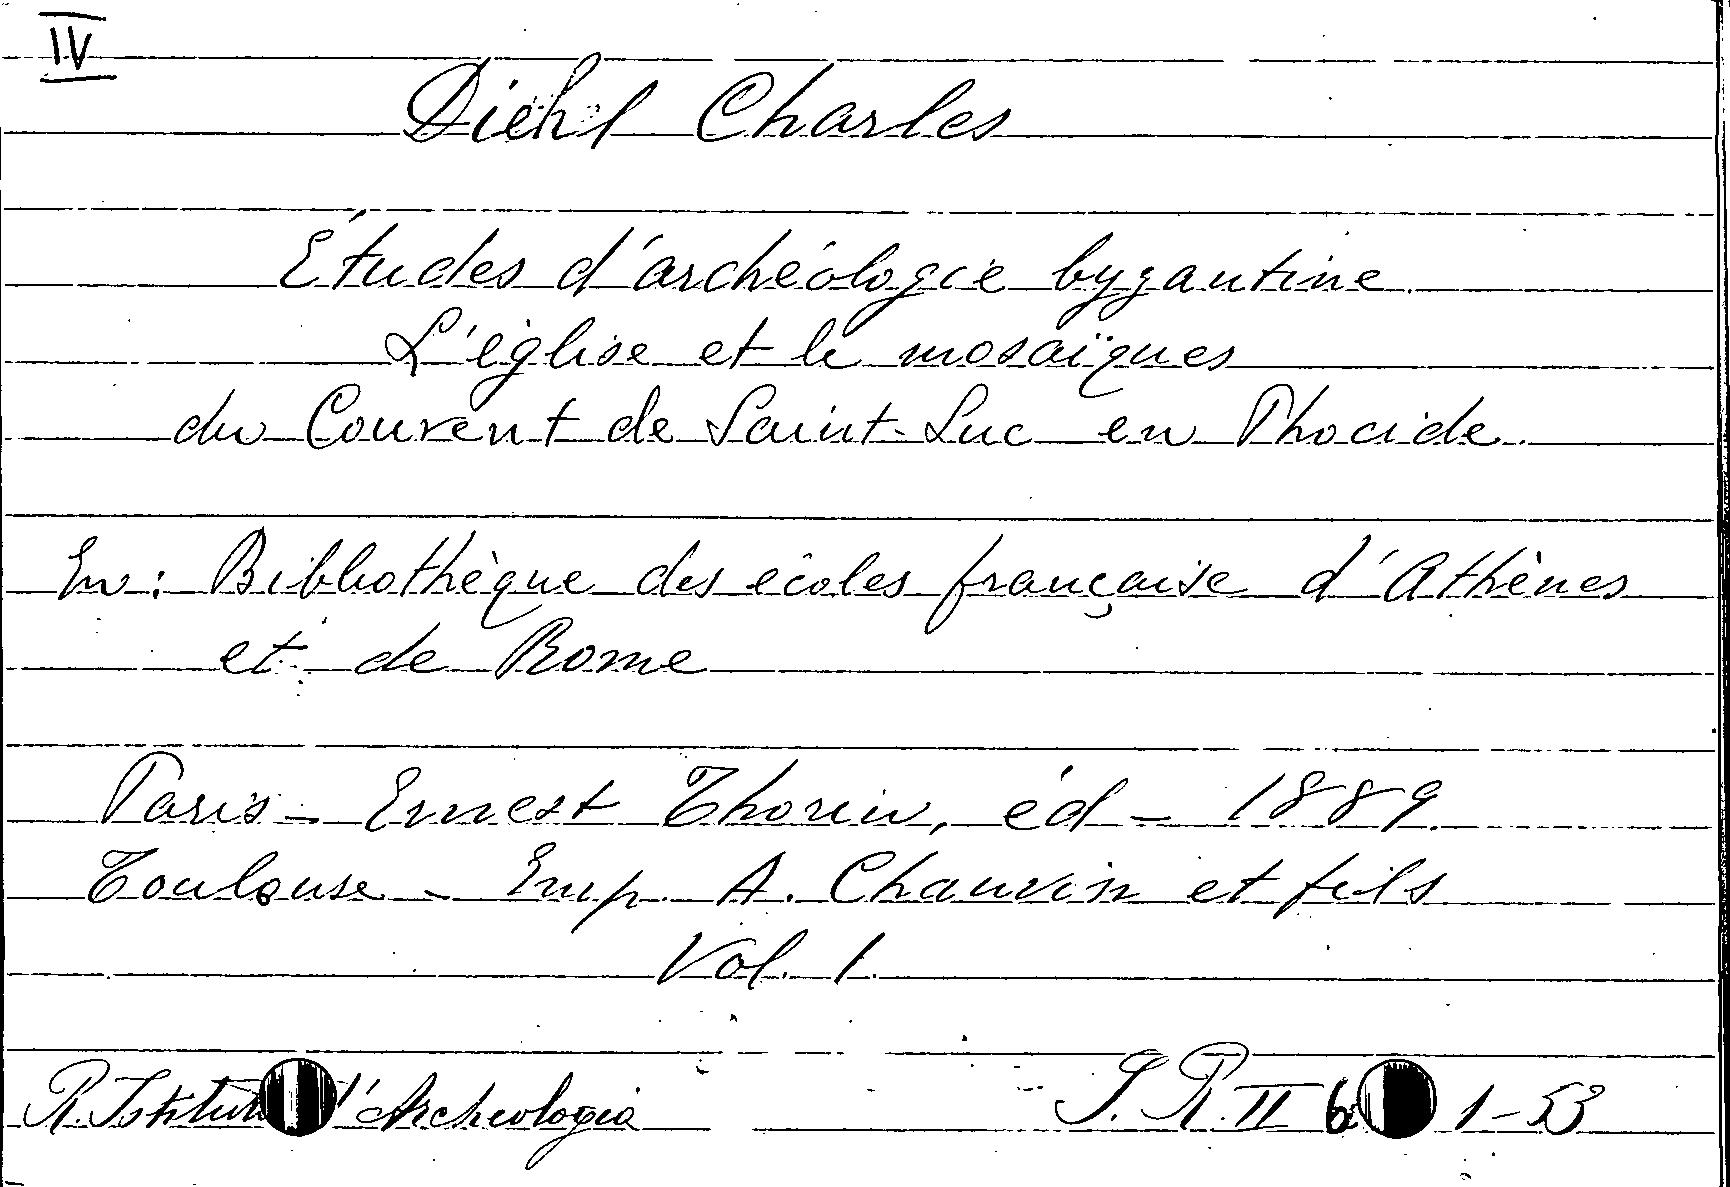 IV
Diehl Charles
Études d'archéologie byzantine
L'église et le mosaïques
du Couvent de Saint-Luc en Phocide
En: Bibliothèque des écoles française d'Athènes
et de Rome
Paris - Ernest Thorin, éd - 1889
Toulouse - Imp. A. Chauvin et fils
Vol. 1.
R. Istituto d'Archeologia S. R. II 6 1-53